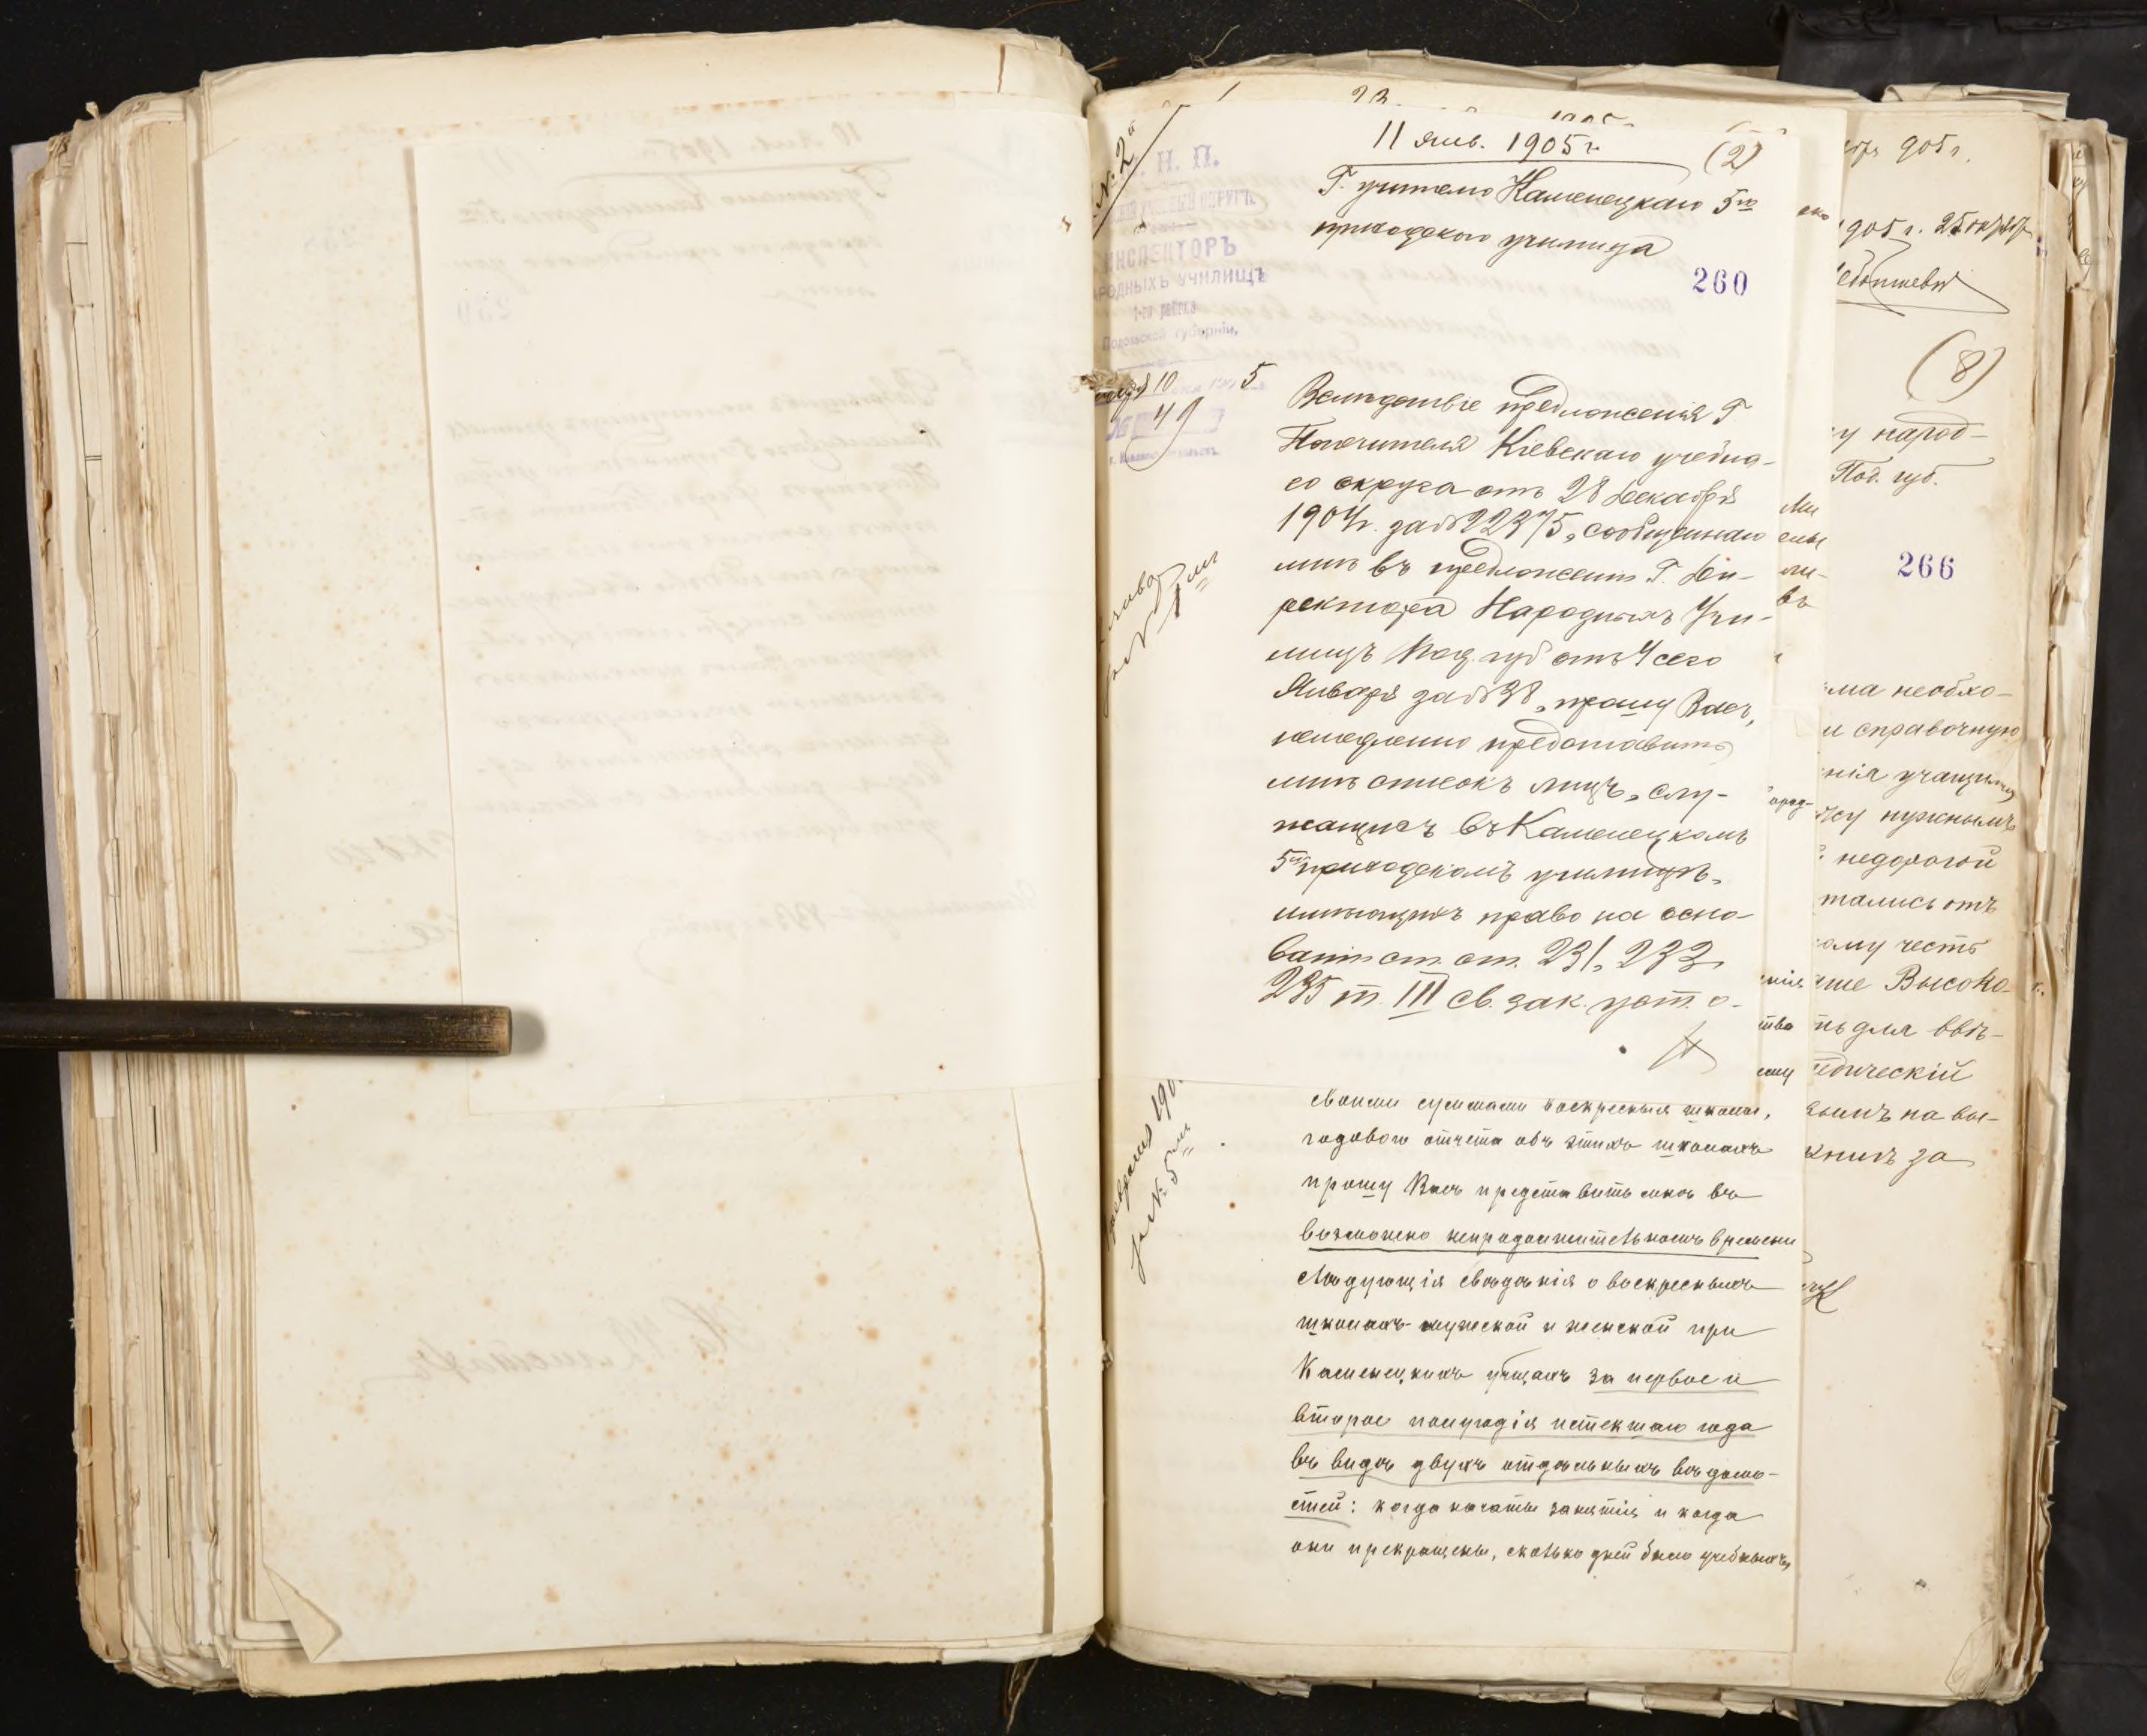 № 2й
11 янв. 1905 г.
(2)
Г. учителю Каменецкаго 5го
приходскаго училища
260
Н. П.
ИНСПЕКТОРЪ
НАРОДНЫХЪ УЧИЛИЩЪ
1-го района
Подольской губерніи,
10
5
№ 49
Вслѣдствіе предложенія Г
Попечителя Кіевскаго учебна-
го округа отъ 28 Декабря
1904 г. за № 22375, сообщеннаго
мнѣ въ предложеніи Г. Ди-
ректора Народныхъ Учи-
лищъ Под. губ отъ 4 сего
Января за № 38, прошу Васъ,
немедленно представить
мнѣ списокъ лицъ, слу-
жащихъ въ Каменецкомъ
5мъ приходскомъ училищѣ,
имѣющихъ право на осно-
ваніи ст. ст. 231, 233,
235 т. III св. зак. уст. о
№ 1
№ 5
своими суммами воскресныя школы,
годового отчета объ этихъ школахъ
прошу Васъ представить мнѣ въ
возможно непродолжительномъ времени
слѣдующія свѣдѣнія о воскресныхъ
школахъ - мужской и женской при
Каменецкихъ уч-щахъ за первое и
второе полугодія истекшаго года
въ видѣ двухъ отдѣльныхъ вѣдомо-
стей: когда начаты занятія и когда
они прекращены, сколько дней было учебныхъ,
905 г.
905 г. 25 октября
(8)
у народ-
Под. губ.
266
ма необхо-
и справочную
нія учащимъ
нужнымъ
недорогой
тались отъ
ому честь
аше Высоко-
ть для ввѣ-
едическій
на вы-
книгъ за